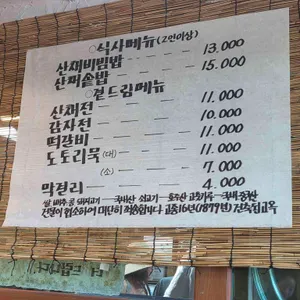 ○식사메뉴(2인이상)
산채비빔밥 - - - 13.000
산퍼솥밥 - - - - 15.000
○곁드림메뉴
산채전 - - - - 11.000
감자전 - - - - 10.000
떡갈비 - - - - 11.000
도토리묵(대) - - 11.000
(소) - - 7.000
막걸리 - - - - 4.000
쌀 배추 콩 돼지고기 - 국내산 쇠고기 - 호주산 고춧가루 - 국내
건평이 협소하여 대단히 죄송합니다